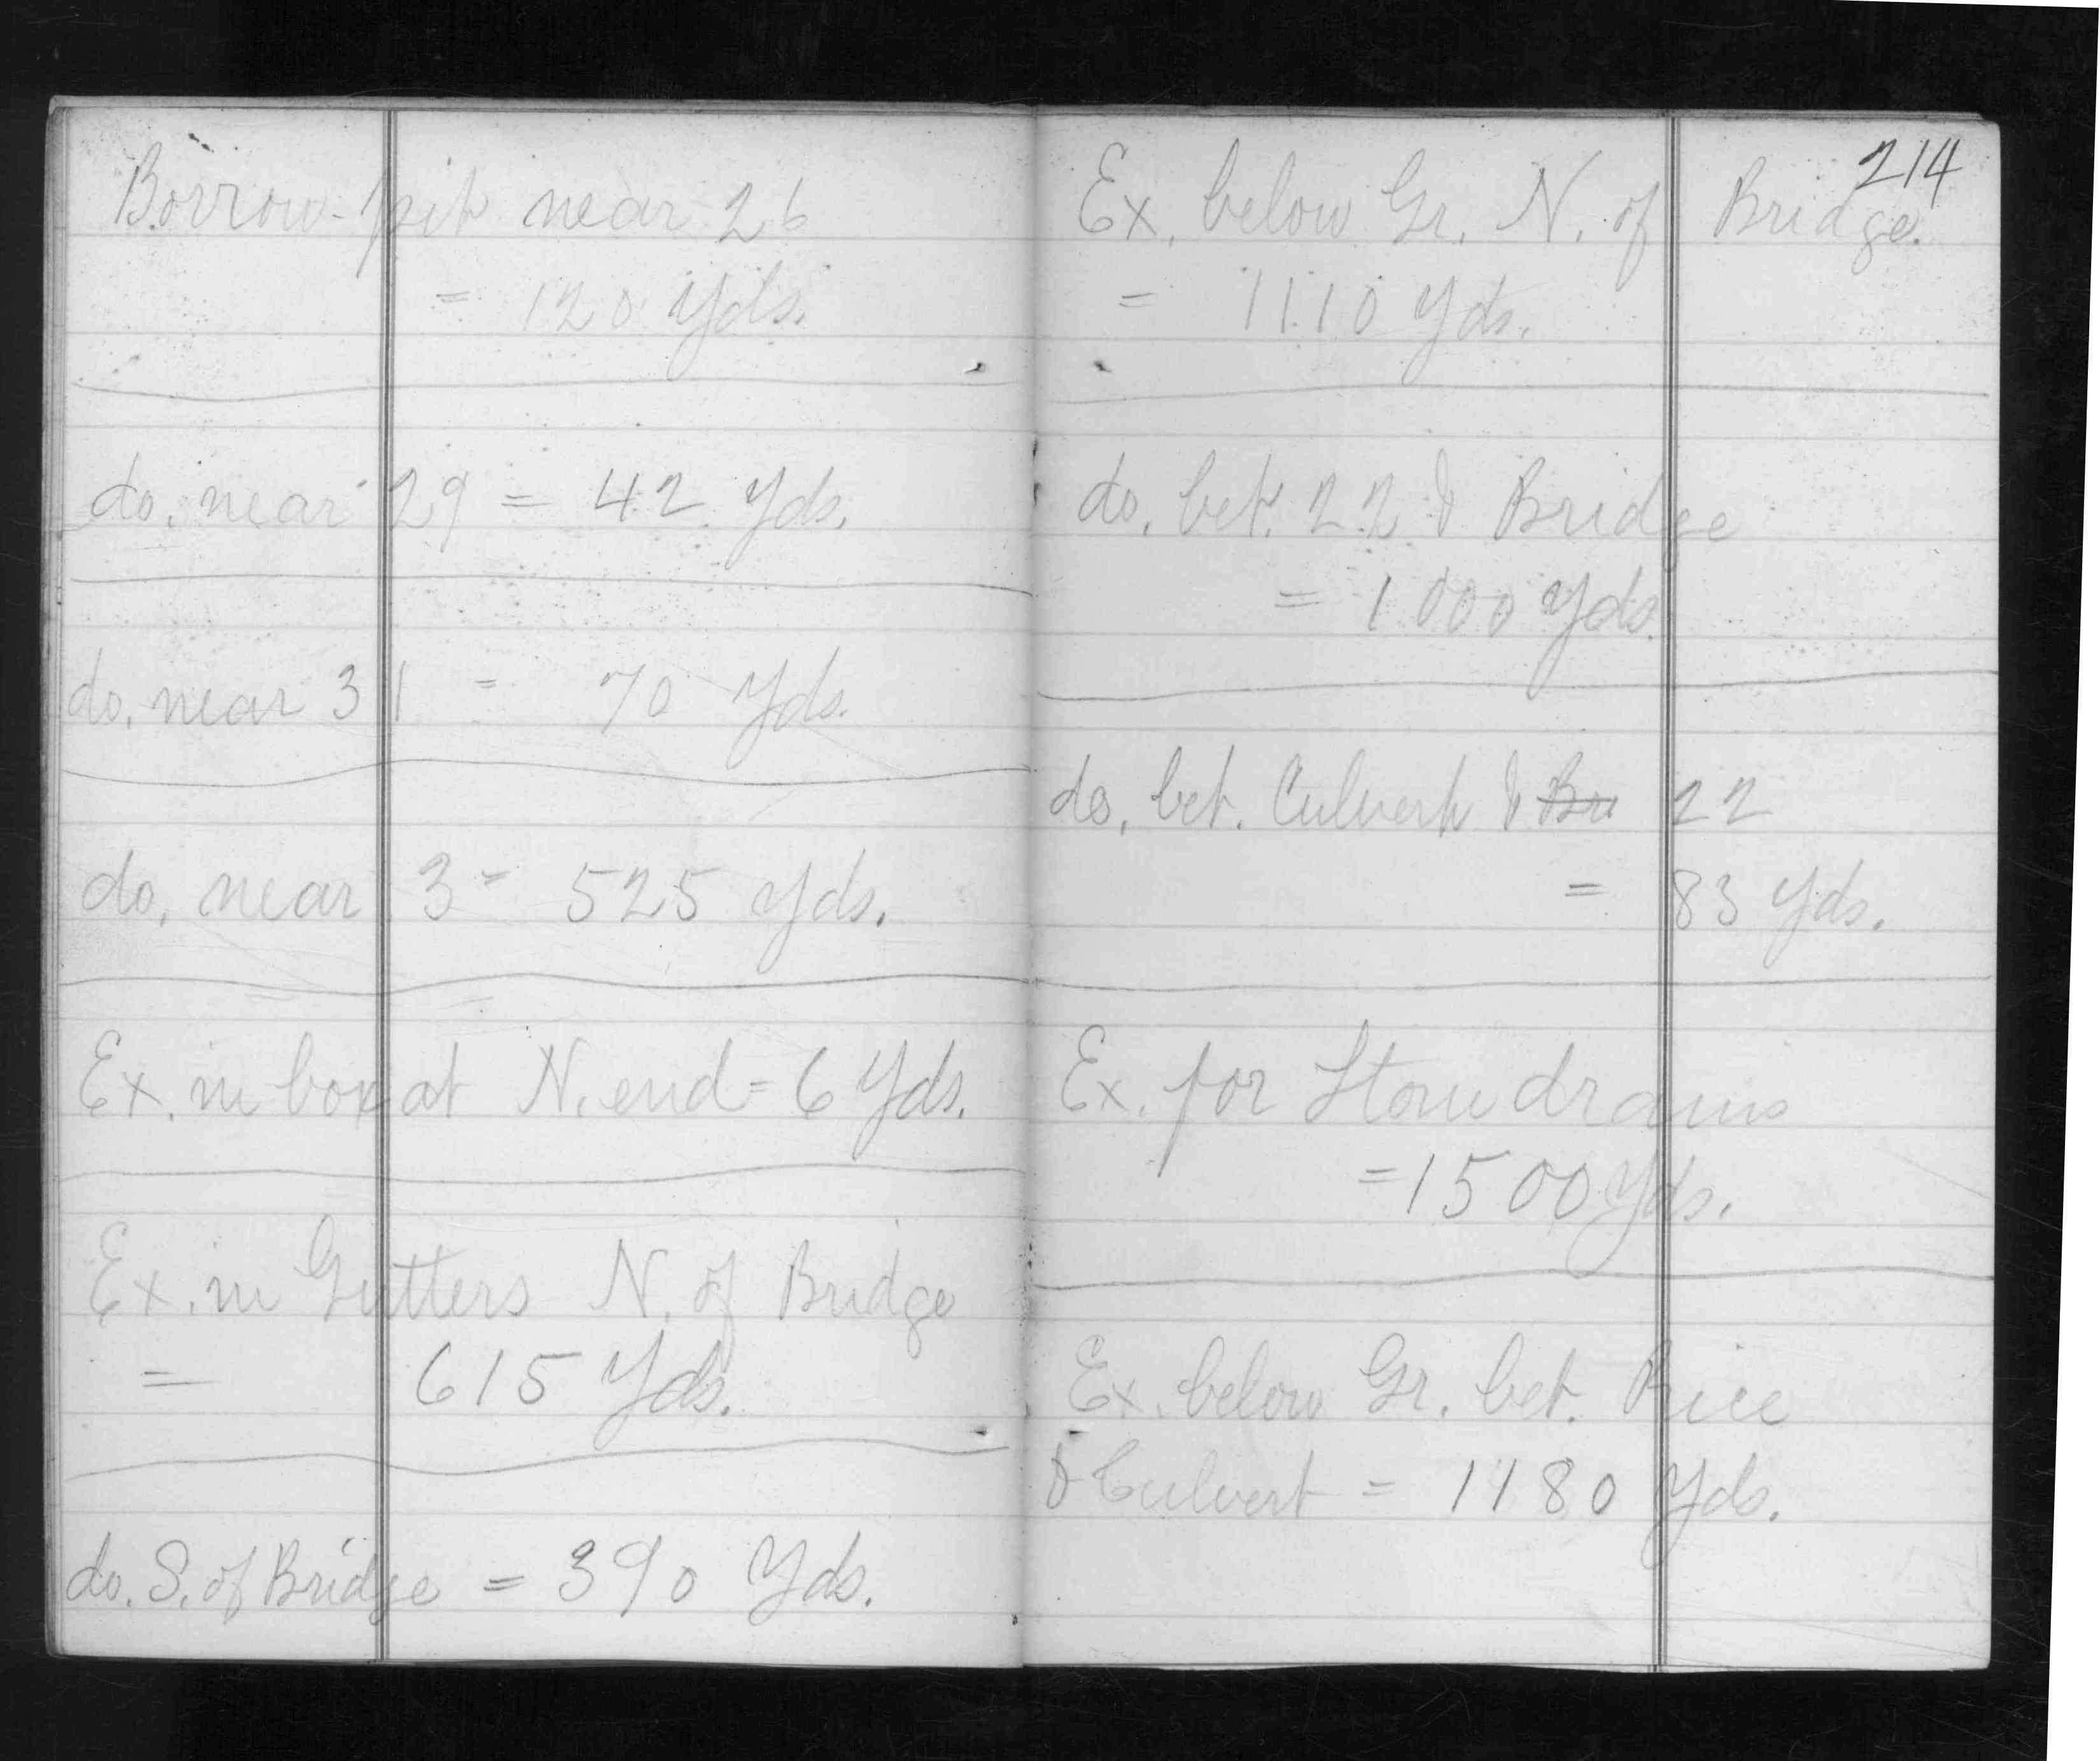 Borrow-pit near 26
= 120 Yds.
do. near 29 = 42 Yds.
do. near 31 = 70 Yds.
do. near 3 = 525 Yds.
Ex. in box at N. end = 6 Yds.
Ex. in Gutters N. of Bridge
= 615 Yds.
do. S. of Bridge = 390 Yds.
214
Ex. below Gr. N. of Bridge.
= 1110 Yds.
do. bet. 22 & Bridge
= 1000 Yds.
do. bet. Culvert & Bri 22
= 83 Yds.
Ex. for Stone drains
= 1500 Yds.
Ex. below Gr. bet. Rice
& Culvert = 1480 Yds.